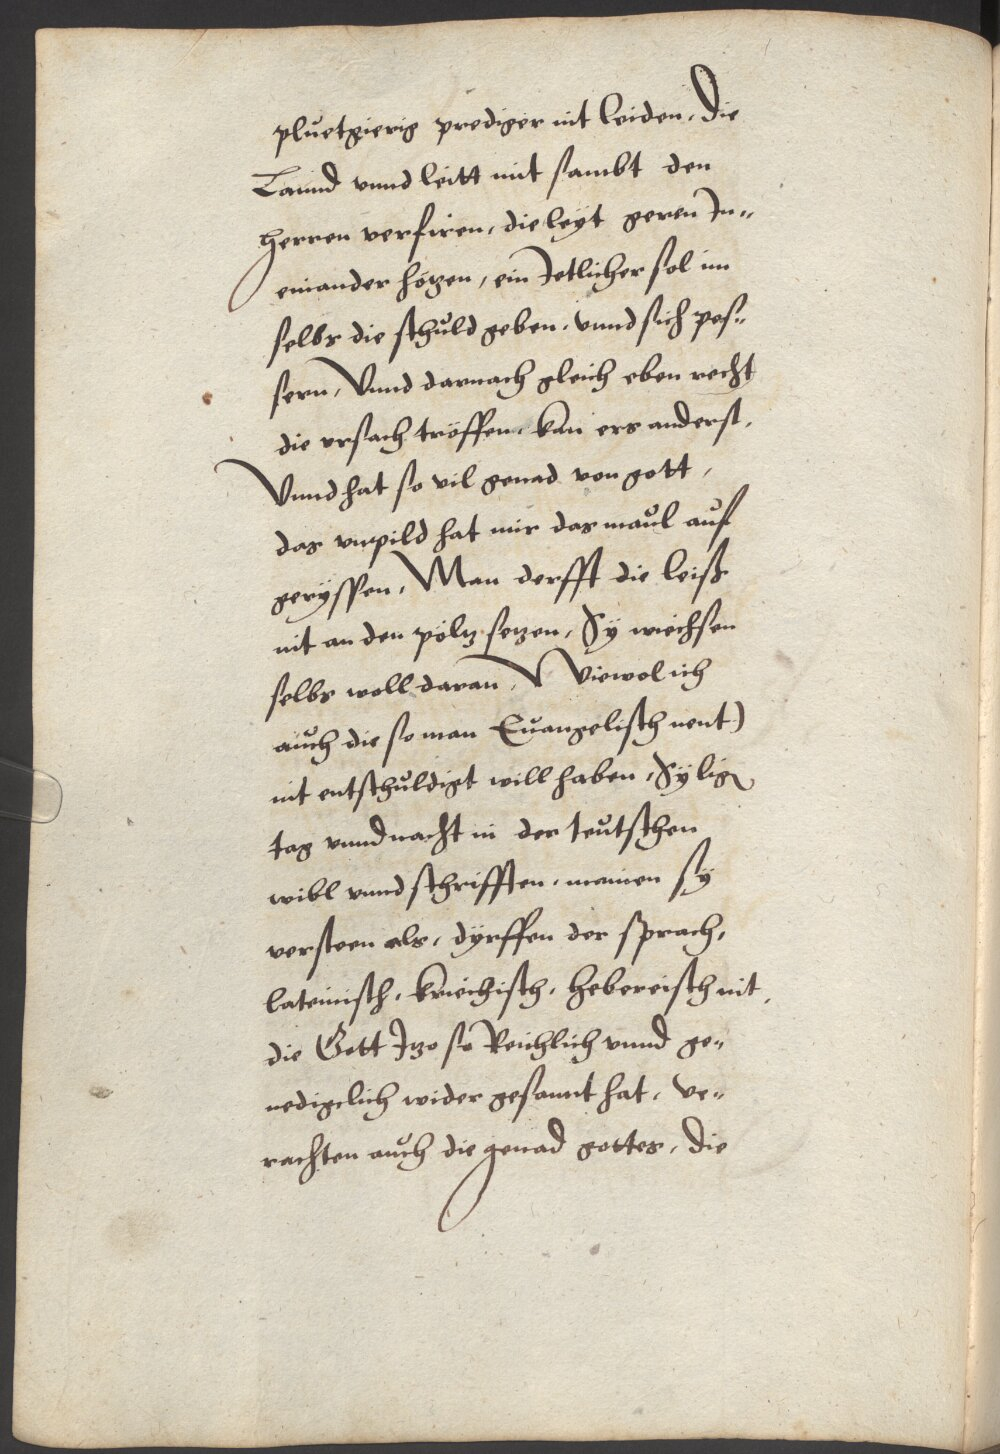 pluetgierig prediger nit leiden, die
Lannd vnnd leitt mit sambt den
herren verfiren, die leyt geren In„
einander hötzen, ein Jetlicher sol im
selbs die schuld geben, vnnd sich pes„
sern, Vnnd darnach gleich eben recht
die vrsach tröffen, kan ers anderst,
Vnnd hat so vil genad von gott,
das vnpild hat mir das maul auf
geryssen, Man derfft die leiß
nit an den pöltz setzen, Sy wiechsen
selbs woll daran, Wiewol ich
auch die so man Euangelisch nent)
nit entschuldigt will haben, Sy lign
tag vnnd nacht in der teutschen
wibl vnnd schrifften, mainen sy
versteen als, dyrffen der sprach,
lateinisch, kriechisch, hebereisch nit,
die Gott Itzo so Reichlich vnnd ge„
nedigclich wider gesannt hat, ve„
rachten auch die genad gottes, die